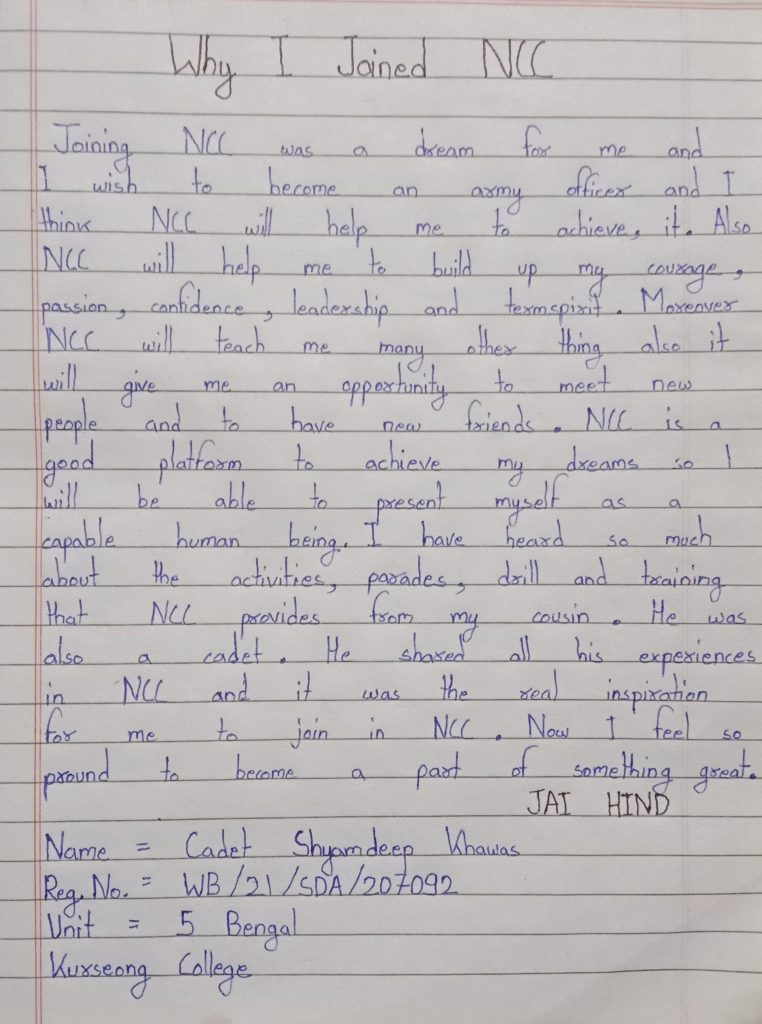 Why I Joined NCC
Joining NCC was a dream for me and
I wish to become an army officer and I
think NCC will help me to achieve, it. Also
NCC will help me to build up my courage,
passion, confidence, leadership and termspirit. Morenver
NCC will teach me many other thing also it
will give me an opportunity to meet new
people and to have new friends. NCC is a
good platform to achieve my dreams so I
will be able to present myself as a
capable human being. I have heard so much
about the activities, parades, drill and training
that NCC provides from my cousin. He was
also a cadet. He shared all his experiences
in NCC and it was the real inspiration
for me to join in NCC. Now I feel so
pround to become a part of something great.
JAI HIND
Name = Cadet Shyamdeep Khawas
Reg. No. = WB/21/SDA/207092
Unit = 5 Bengal
Kurseong College